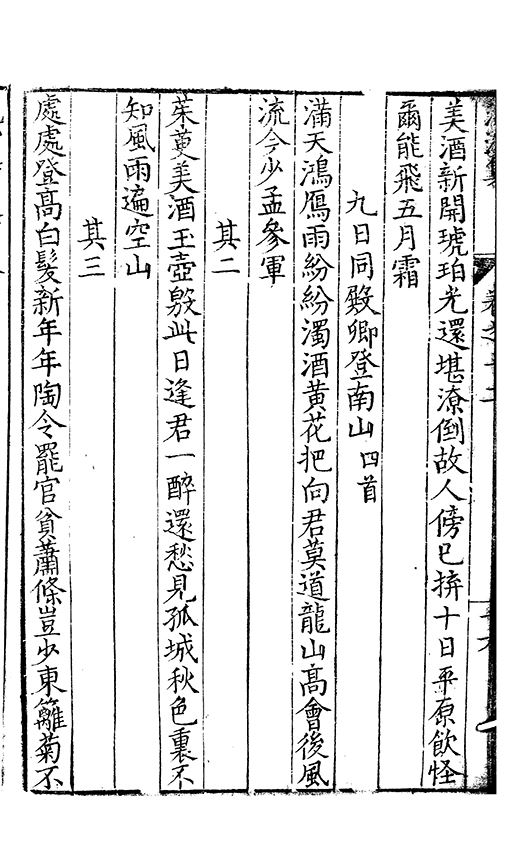 美酒新開琥珀光還堪潦倒故人傍已拚十日平原飲怪
爾能飛五月霜
九日同殿卿登南山四首
滿天鴻鴈雨紛紛濁酒黃花把向君莫道龍山高會後風
流今少孟參軍
其二
茱萸美酒玉壺殷此日逢君一醉還愁見孤城秋色裏不
知風雨遍空山
其三
處處登高白髮新年年陶令罷官貧蕭條豈少東籬菊不